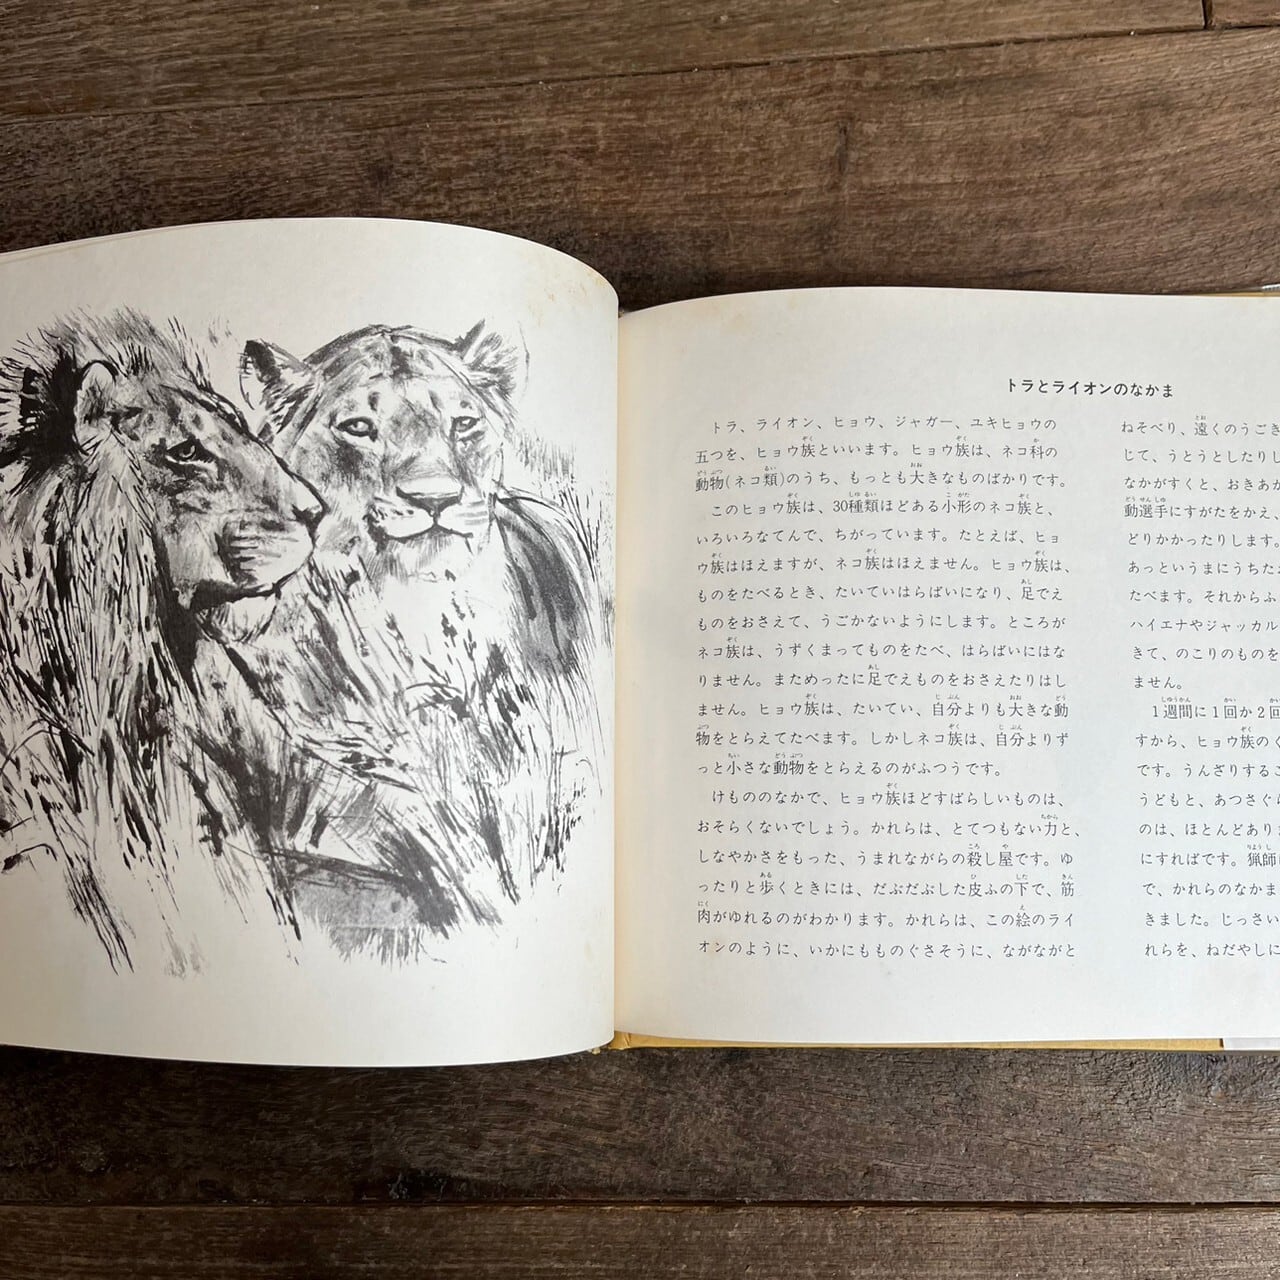 トラとライオンのなかま
トラ、ライオン、ヒョウ、ジャガー、ユキヒョウの
五つを、ヒョウ族といいます。ヒョウ族は、ネコ科の
動物(ネコ類)のうち、もっとも大きなものばかりです。
このヒョウ族は、30種類ほどある小形のネコ族と、
いろいろなてんで、ちがっています。たとえば、ヒョ
ウ族はほえますが、ネコ族はほえません。ヒョウ族は、
ものをたべるとき、たいていはらばいになり、足でえ
ものをおさえて、うごかないようにします。ところが
ネコ族は、うずくまってものをたべ、はらばいにはな
りません。まためったに足でえものをおさえたりはし
ません。ヒョウ族は、たいてい、自分よりも大きな動
物をとらえてたべます。しかしネコ族は、自分よりず
っと小さな動物をとらえるのがふつうです。
けもののなかで、ヒョウ族ほどすばらしいものは、
おそらくないでしょう。かれらは、とてつもない力と、
しなやかさをもった、うまれながらの殺し屋です。ゆ
ったりと歩くときには、だぶだぶした皮ふの下で、筋
肉がゆれるのがわかります。かれらは、この絵のライ
オンのように、いかにもものぐさそうに、ながながと
ねそべり、遠くのうごき
じて、うとうとしたりし
なかがすくと、おきあが
動選手にすがたをかえ、
どりかかったりします。
あっというまにうちたお
たべます。それからふ
ハイエナやジャッカル
きて、のこりのものを
ません。
1週間に1回か2回
すから、ヒョウ族のく
です。うんざりするこ
うどもと、あつさぐら
のは、ほとんどありま
にすればです。猟師に
で、かれらのなかま
きました。じっさい
れらを、ねだやしに